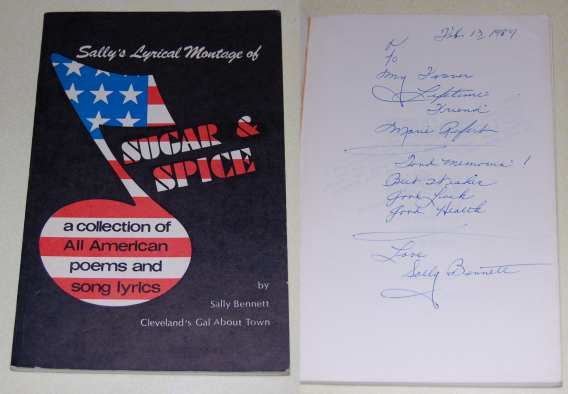 Sally's Lyrical Montage of
SUGAR &
SPICE
a collection of
All American
poems and
song lyrics
by
Sally Bennett
Cleveland's Gal About Town
Feb. 13, 1984
To
My
Lifetime
Friend
Marie
Fond Memories!
Best Wishes
Good Luck
Good Health
Love
Sally Bennett